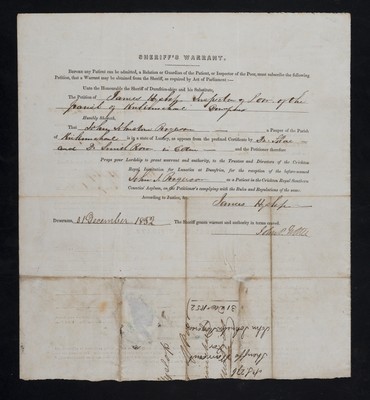 SHERIFF'S WARRANT.
BEFORE any Patient can be admitted, a Relation or Guardian of the Patient, or Inspector of the Poor, must subscribe the following
Petition, that a Warrant may be obtained from the Sheriff, as required by Act of Parliament:—
Unto the Honourable the Sheriff of Dumfries-shire and his Substitute,
The Petition of James Hyslop Inspector of Poor of the
parish of Kirkmahoe Dumfries
Humbly Sheweth,
That John Johnston Rogerson a Pauper of the Parish
of Kirkmahoe is in a state of Lunacy, as appears from the prefixed Certificate by Dr
and Dr and the Petitioner therefore
Prays your Lordship to grant warrant and authority, to the Trustees and Directors of the Crichton
Royal Institution for Lunatics at Dumfries, for the reception of the before-named
John J. Rogerson as a Patient in the Crichton Royal Institution
Lunatic Asylum, on the Petitioner's complying with the Rules and Regulations of the same.
According to Justice, &c.
James Hyslop
DUMFRIES, 31 December 1852 The Sheriff grants warrant and authority in terms craved.
Sheriff's Warrant
for
John Johnston Rogerson
31 Decr 1852